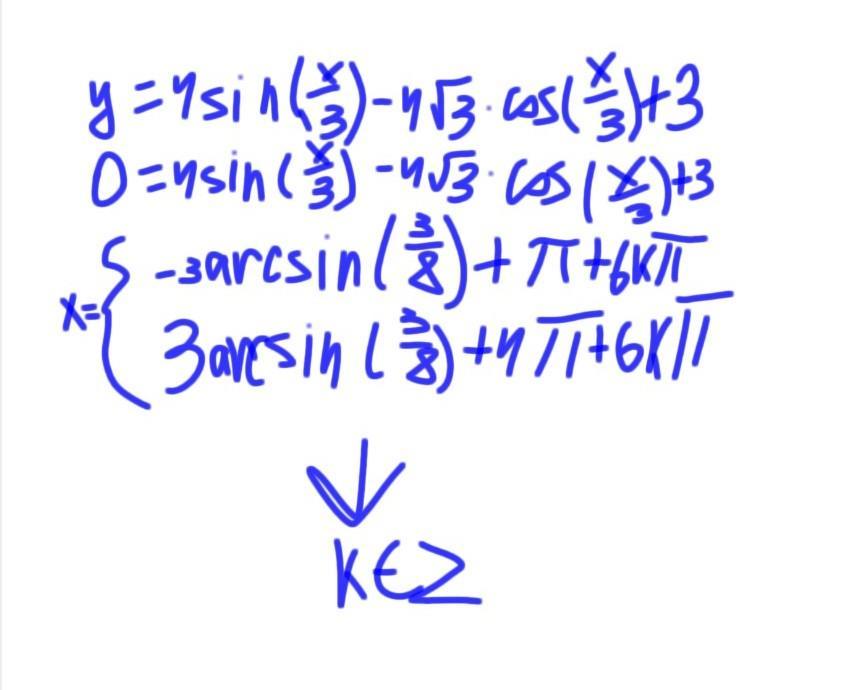 y = 4sin(x/3) - 4√3 · cos(x/3) + 3
0 = 4sin(x/3) - 4√3 · cos(x/3) + 3
x = { -3arcsin(3/8) + π + 6kπ
3arcsin(3/8) + 4π + 6kπ
↓
k ∈ Z